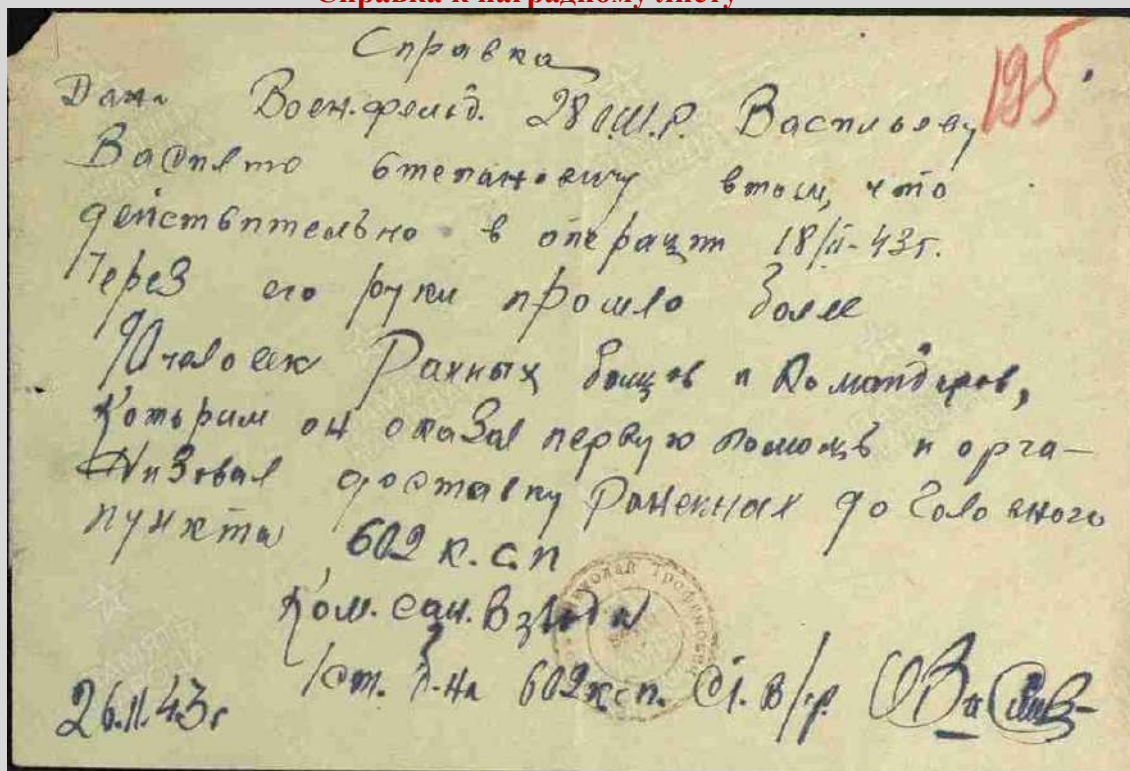 Справка к наградному листу
Справка
195
Дана Воен.фельд. 28 О.Ш.Р. Васильеву
Василию Степановичу втом, что
действительно в операции 18/II-43г.
Через его руки прошло более
90 человек Ранных бойцов и Командиров,
Которим он оказал первую помощь и орга-
Низовал доставку Раненных до Головного
пункта 602 к.с.п
Ком. сан. Взвода
602 к.сп. Ст. в/ф.
26.II.43г